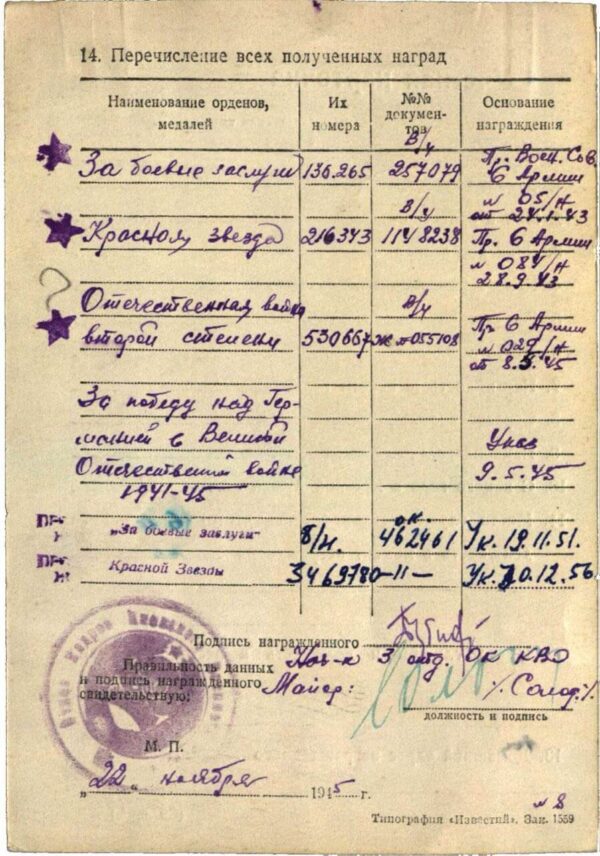 14. Перечисление всех полученных наград
Наименование орденов, медалей
Их номера
№№ документов
Основание награждения
За боевые заслуги 136.265 В/у 257079 Пр. Воен. Сов. 6 Армии
№ 05/н
от 24.1.43
Красной звезда 216343 В/у 1148238 Пр. 6 Армии
№ 084/н
28.9.43
Отечественная война
второй степени 530667 В/у Ж № 055108 Пр 6 Армии
№ 029/н
от 8.5.45
За победу над Гер-
манией в Великой
Отечественной войне
1941-45
Указ
9.5.45
„За боевые заслуги" б/н. ок. 462461 Ук. 19.11.51.
Красной Звезды 3469780 -11- Ук. 30.12.56
Подпись награжденного
Правильность данных и подпись награжденного свидетельствую:
Нач-к 3 отд. ОК КВО
Майор: /Солод./
должность и подпись
М. П.
„22" ноября 1945 г.
№ 8
Типография «Известий». Зак. 1559